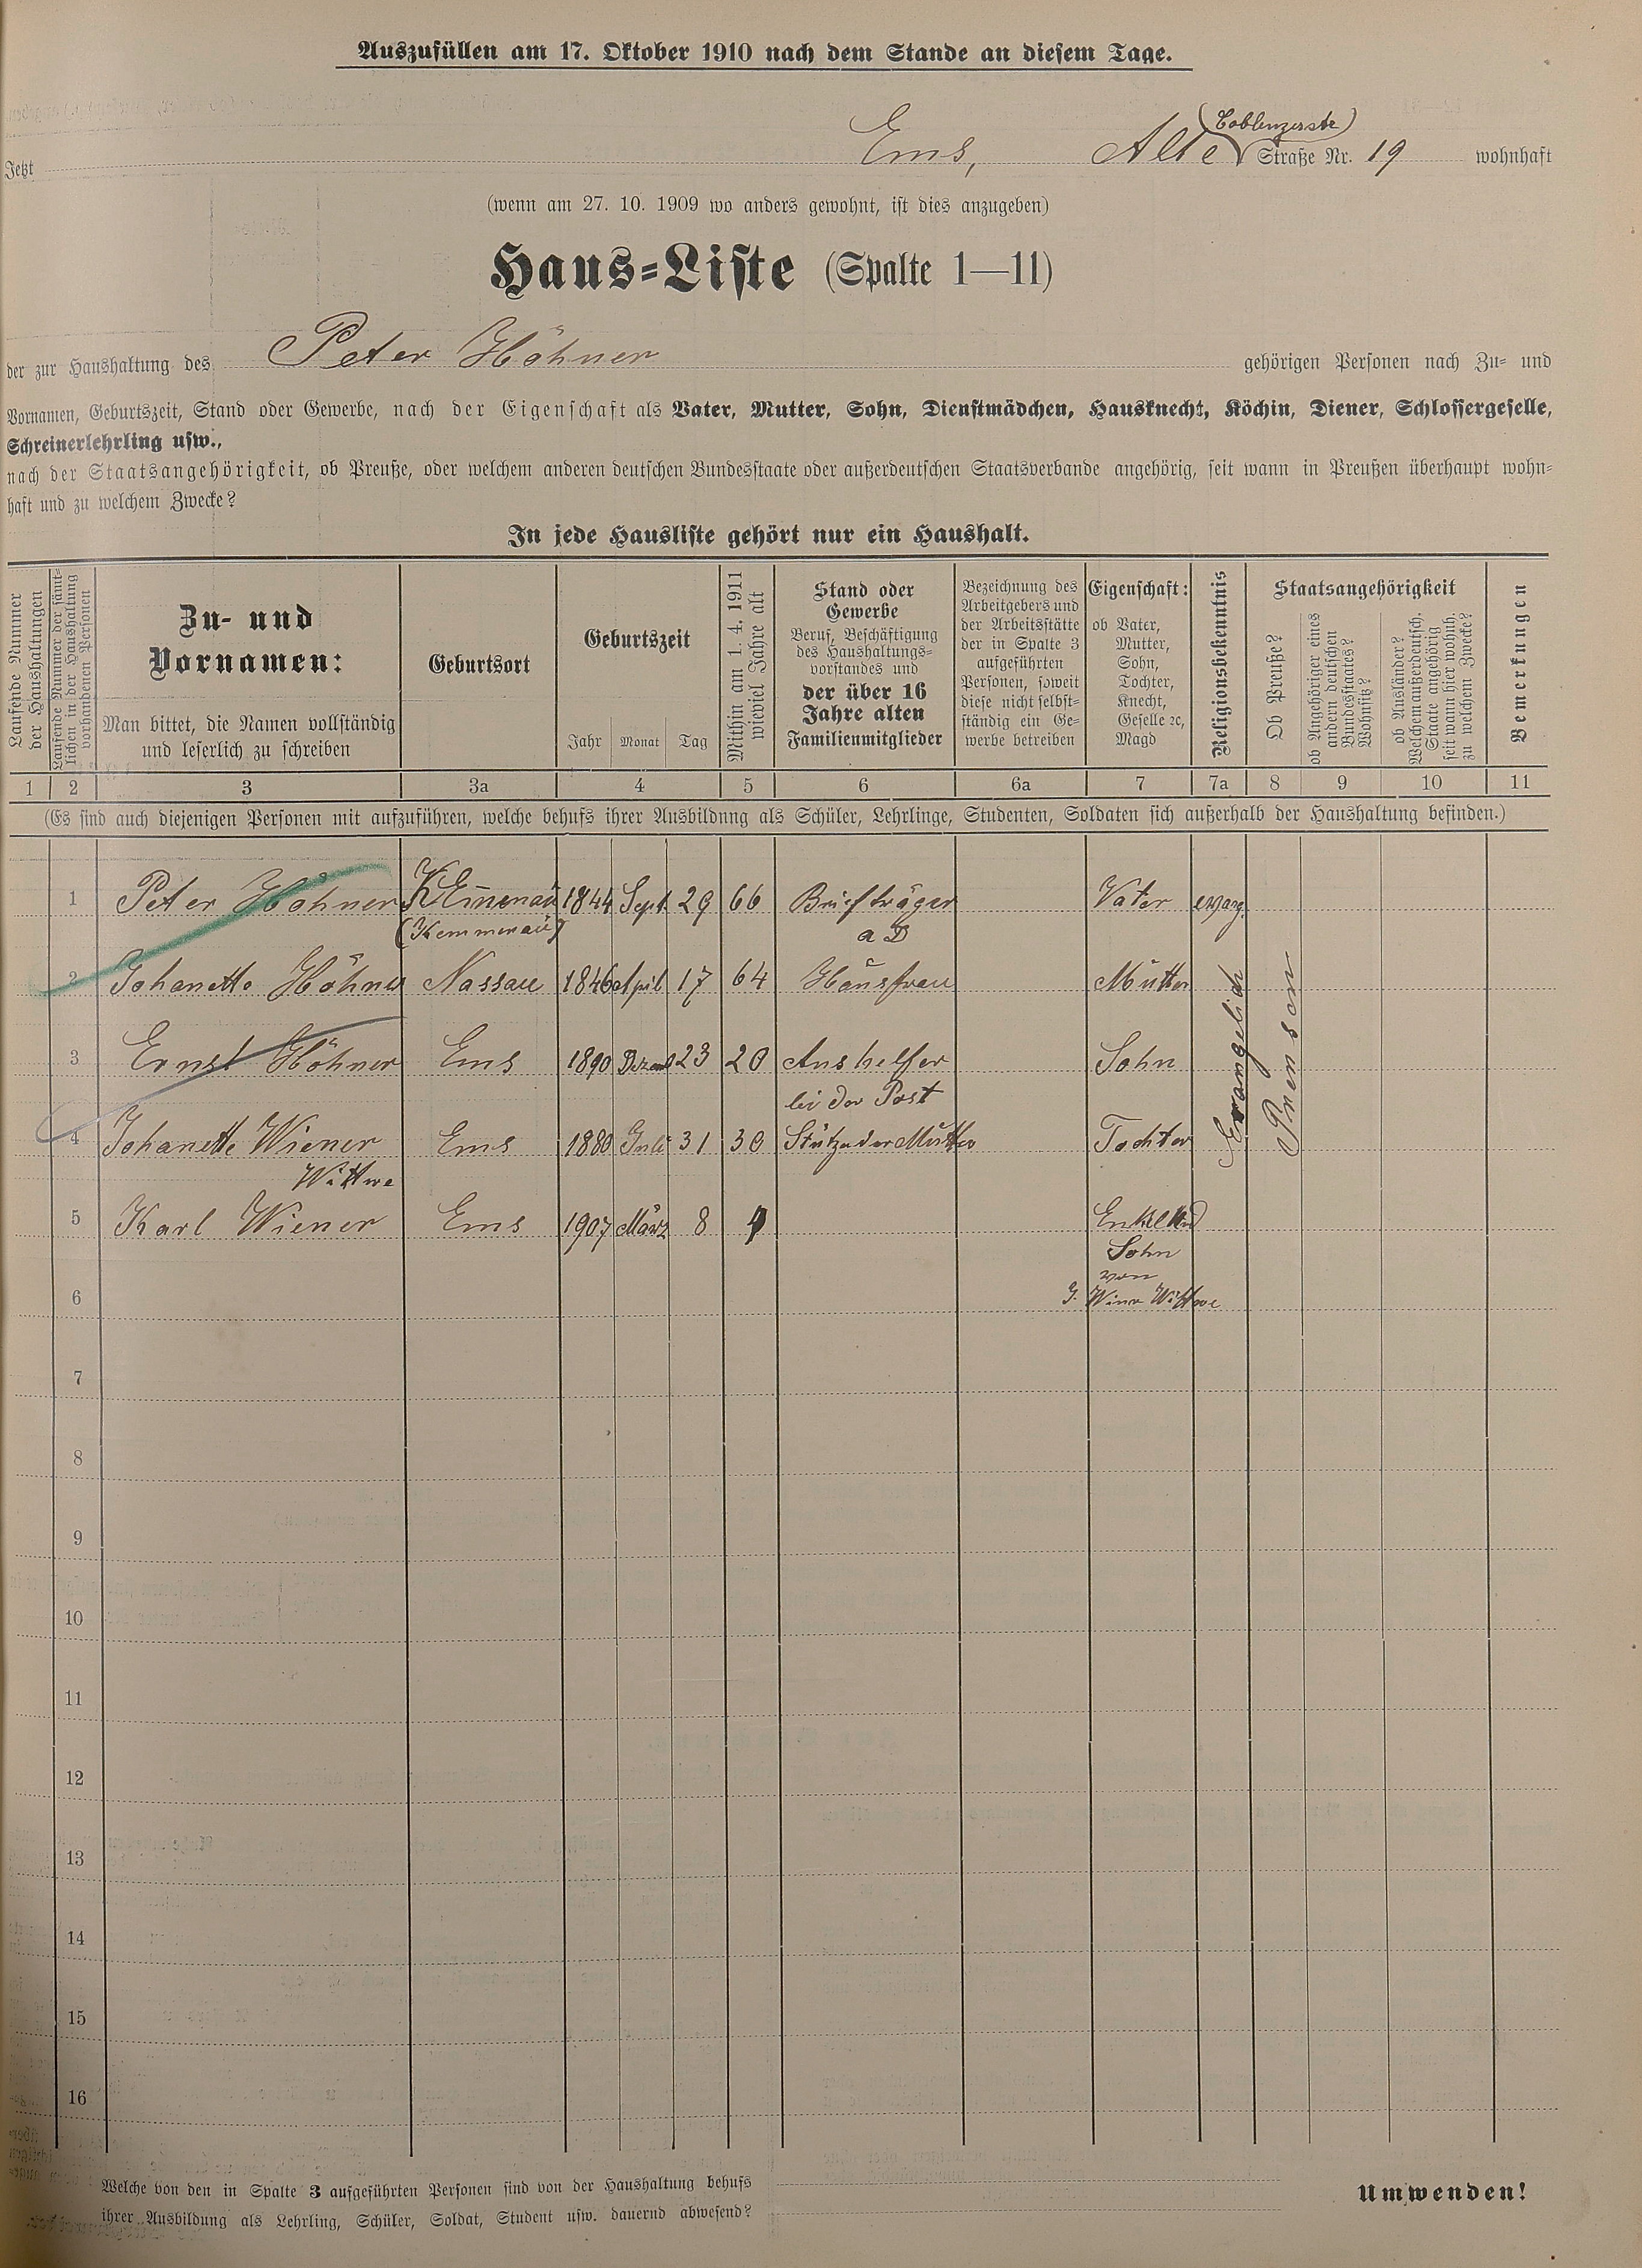 Auszufüllen am 17. Oktober 1910 nach dem Stande an diesem Tage.
(Coblenzerstr)
Jetzt Ems, Alte Straße Nr. 19 wohnhaft
(wenn am 27. 10. 1909 wo anders gewohnt, ist dies anzugeben)
Haus-Liste (Spalte 1—11)
der zur Haushaltung des Peter Höhner gehörigen Personen nach Zu- und
Vornamen, Geburtszeit, Stand oder Gewerbe, nach der Eigenschaft als Vater, Mutter, Sohn, Dienstmädchen, Hausknecht, Köchin, Diener, Schlossergeselle,
Schreinerlehrling usw.,
nach der Staatsangehörigkeit, ob Preuße, oder welchem anderen deutschen Bundesstaate oder außerdeutschen Staatsverbande angehörig, seit wann in Preußen überhaupt wohn-
haft und zu welchem Zwecke?
In jede Hausliste gehört nur ein Haushalt.
Laufende Nummer
der Haushaltungen
Laufende Nummer der sämt-
lichen in der Haushaltung
vorhandenen Personen
Zu- und
Vornamen:
Man bittet, die Namen vollständig
und leserlich zu schreiben
Geburtsort
Geburtszeit
Jahr Monat Tag
Mithin am 1. 4. 1911
wieviel Jahre alt
Stand oder
Gewerbe
Beruf, Beschäftigung
des Haushaltungs-
vorstandes und
der über 16
Jahre alten
Familienmitglieder
Bezeichnung des
Arbeitgebers und
der Arbeitsstätte
der in Spalte 3
aufgeführten
Personen, soweit
diese nicht selbst-
ständig ein Ge-
werbe betreiben
Eigenschaft:
ob Vater,
Mutter,
Sohn,
Tochter,
Knecht,
Geselle ꝛc,
Magd
Religionsbekenntnis
Staatsangehörigkeit
Ob Preuße?
ob Angehöriger eines
andern deutschen
Bundesstaates?
Wohnsitz?
ob Ausländer?
Welchem außerdeutsch.
Staate angehörig
seit wann hier wohnh.
zu welchem Zwecke?
Bemerkungen
1 2 3 3a 4 5 6 6a 7 7a 8 9 10 11
(Es sind auch diejenigen Personen mit aufzuführen, welche behufs ihrer Ausbildung als Schüler, Lehrlinge, Studenten, Soldaten sich außerhalb der Haushaltung befinden.)
1 Peter Höhner Kemenau 1844 Sept. 29 66 Briefträger Vater evang.
(Kemmenau) a D
2 Johanette Höhner Nassau 1846 April 17 64 Hausfrau Mutter
3 Ernst Höhner Ems 1890 Dezemb 23 20 Aushelfer Sohn
bei der Post
4 Johanette Wiener Ems 1880 Juli 31 30 Stütze der Mutter Tochter
Wittwe
Evangelich
Preussen
5 Karl Wiener Ems 1907 März 8 4 Enkelkind
Sohn
von
J. Winr Wittwe
6
7
8
9
10
11
12
13
14
15
16
Welche von den in Spalte 3 aufgeführten Personen sind von der Haushaltung behufs
ihrer Ausbildung als Lehrling, Schüler, Soldat, Student usw. dauernd abwesend?
Umwenden!